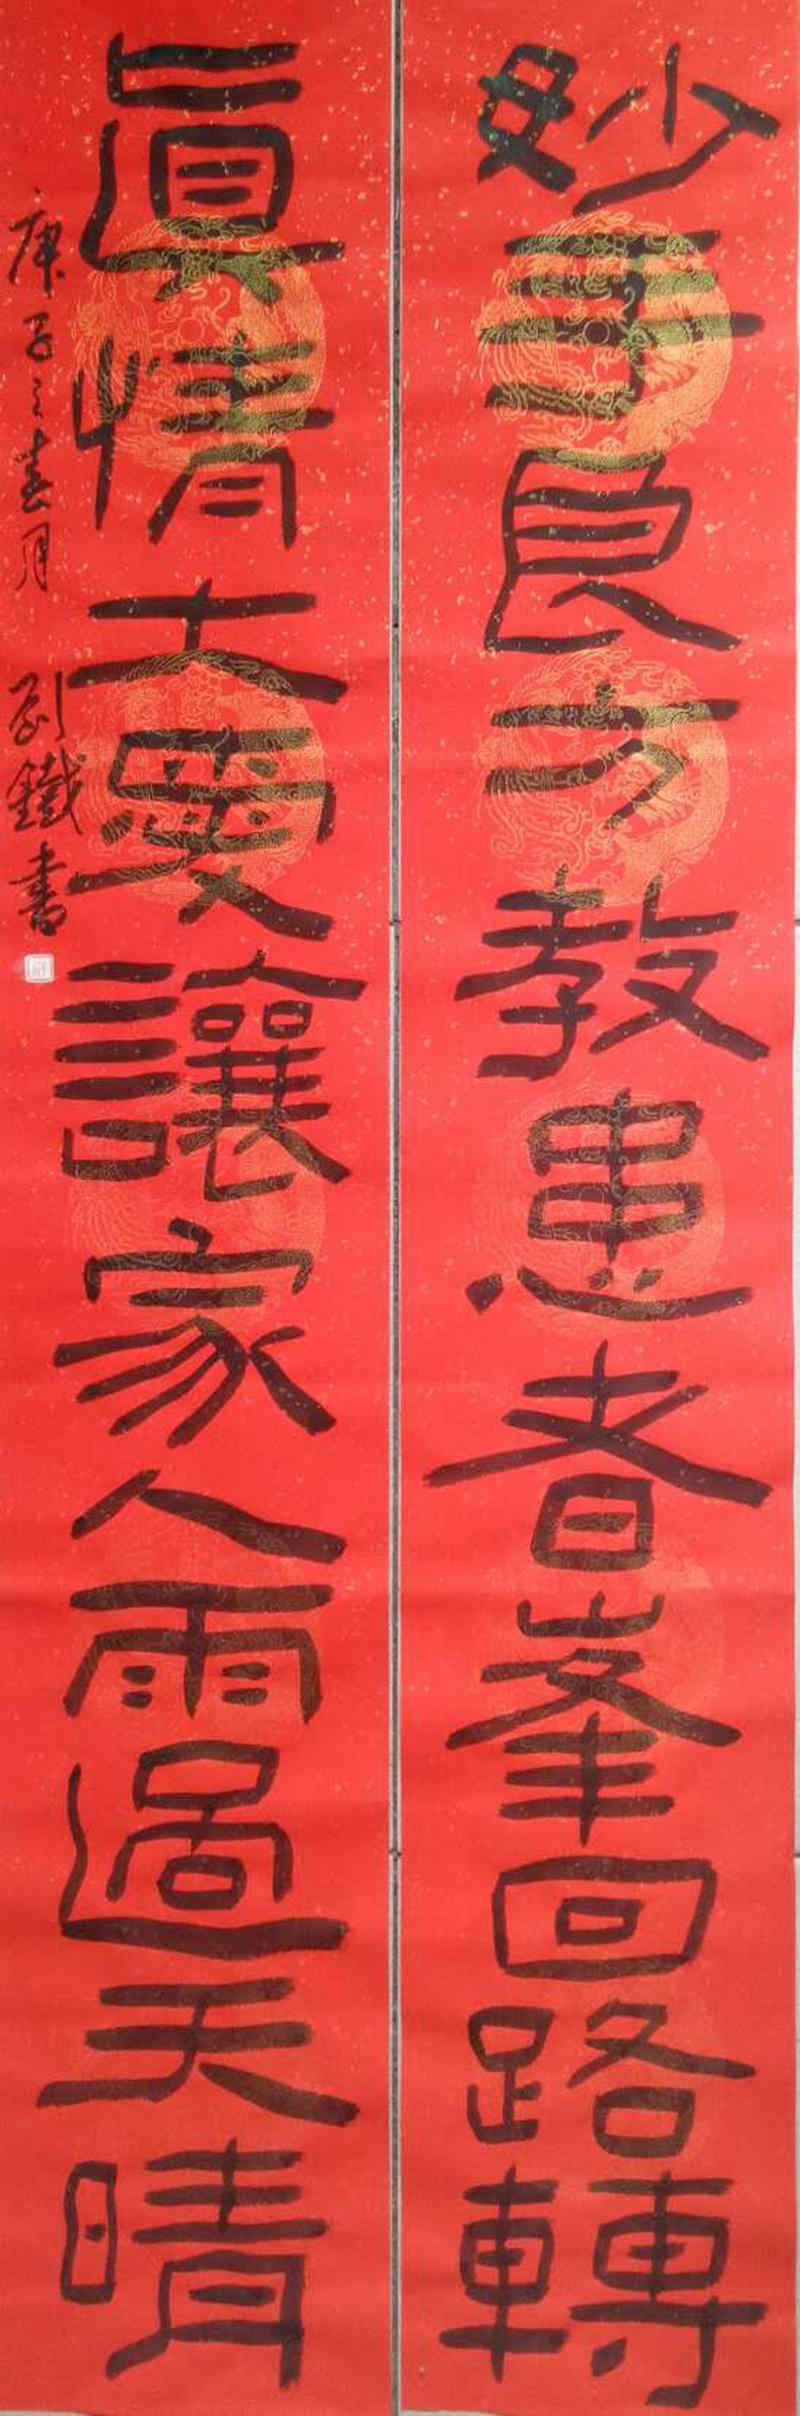 妙手良方教患者峯回路轉
眞情大愛讓家人雨過天晴
庚子之春月
劉鐵書